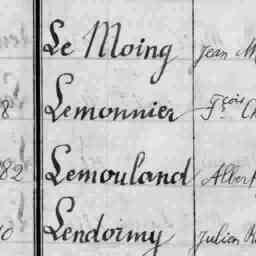 Le Moing Jean
8 Lemonnier Fçois
82 Lemouland Albert
0 Lendormy Julien